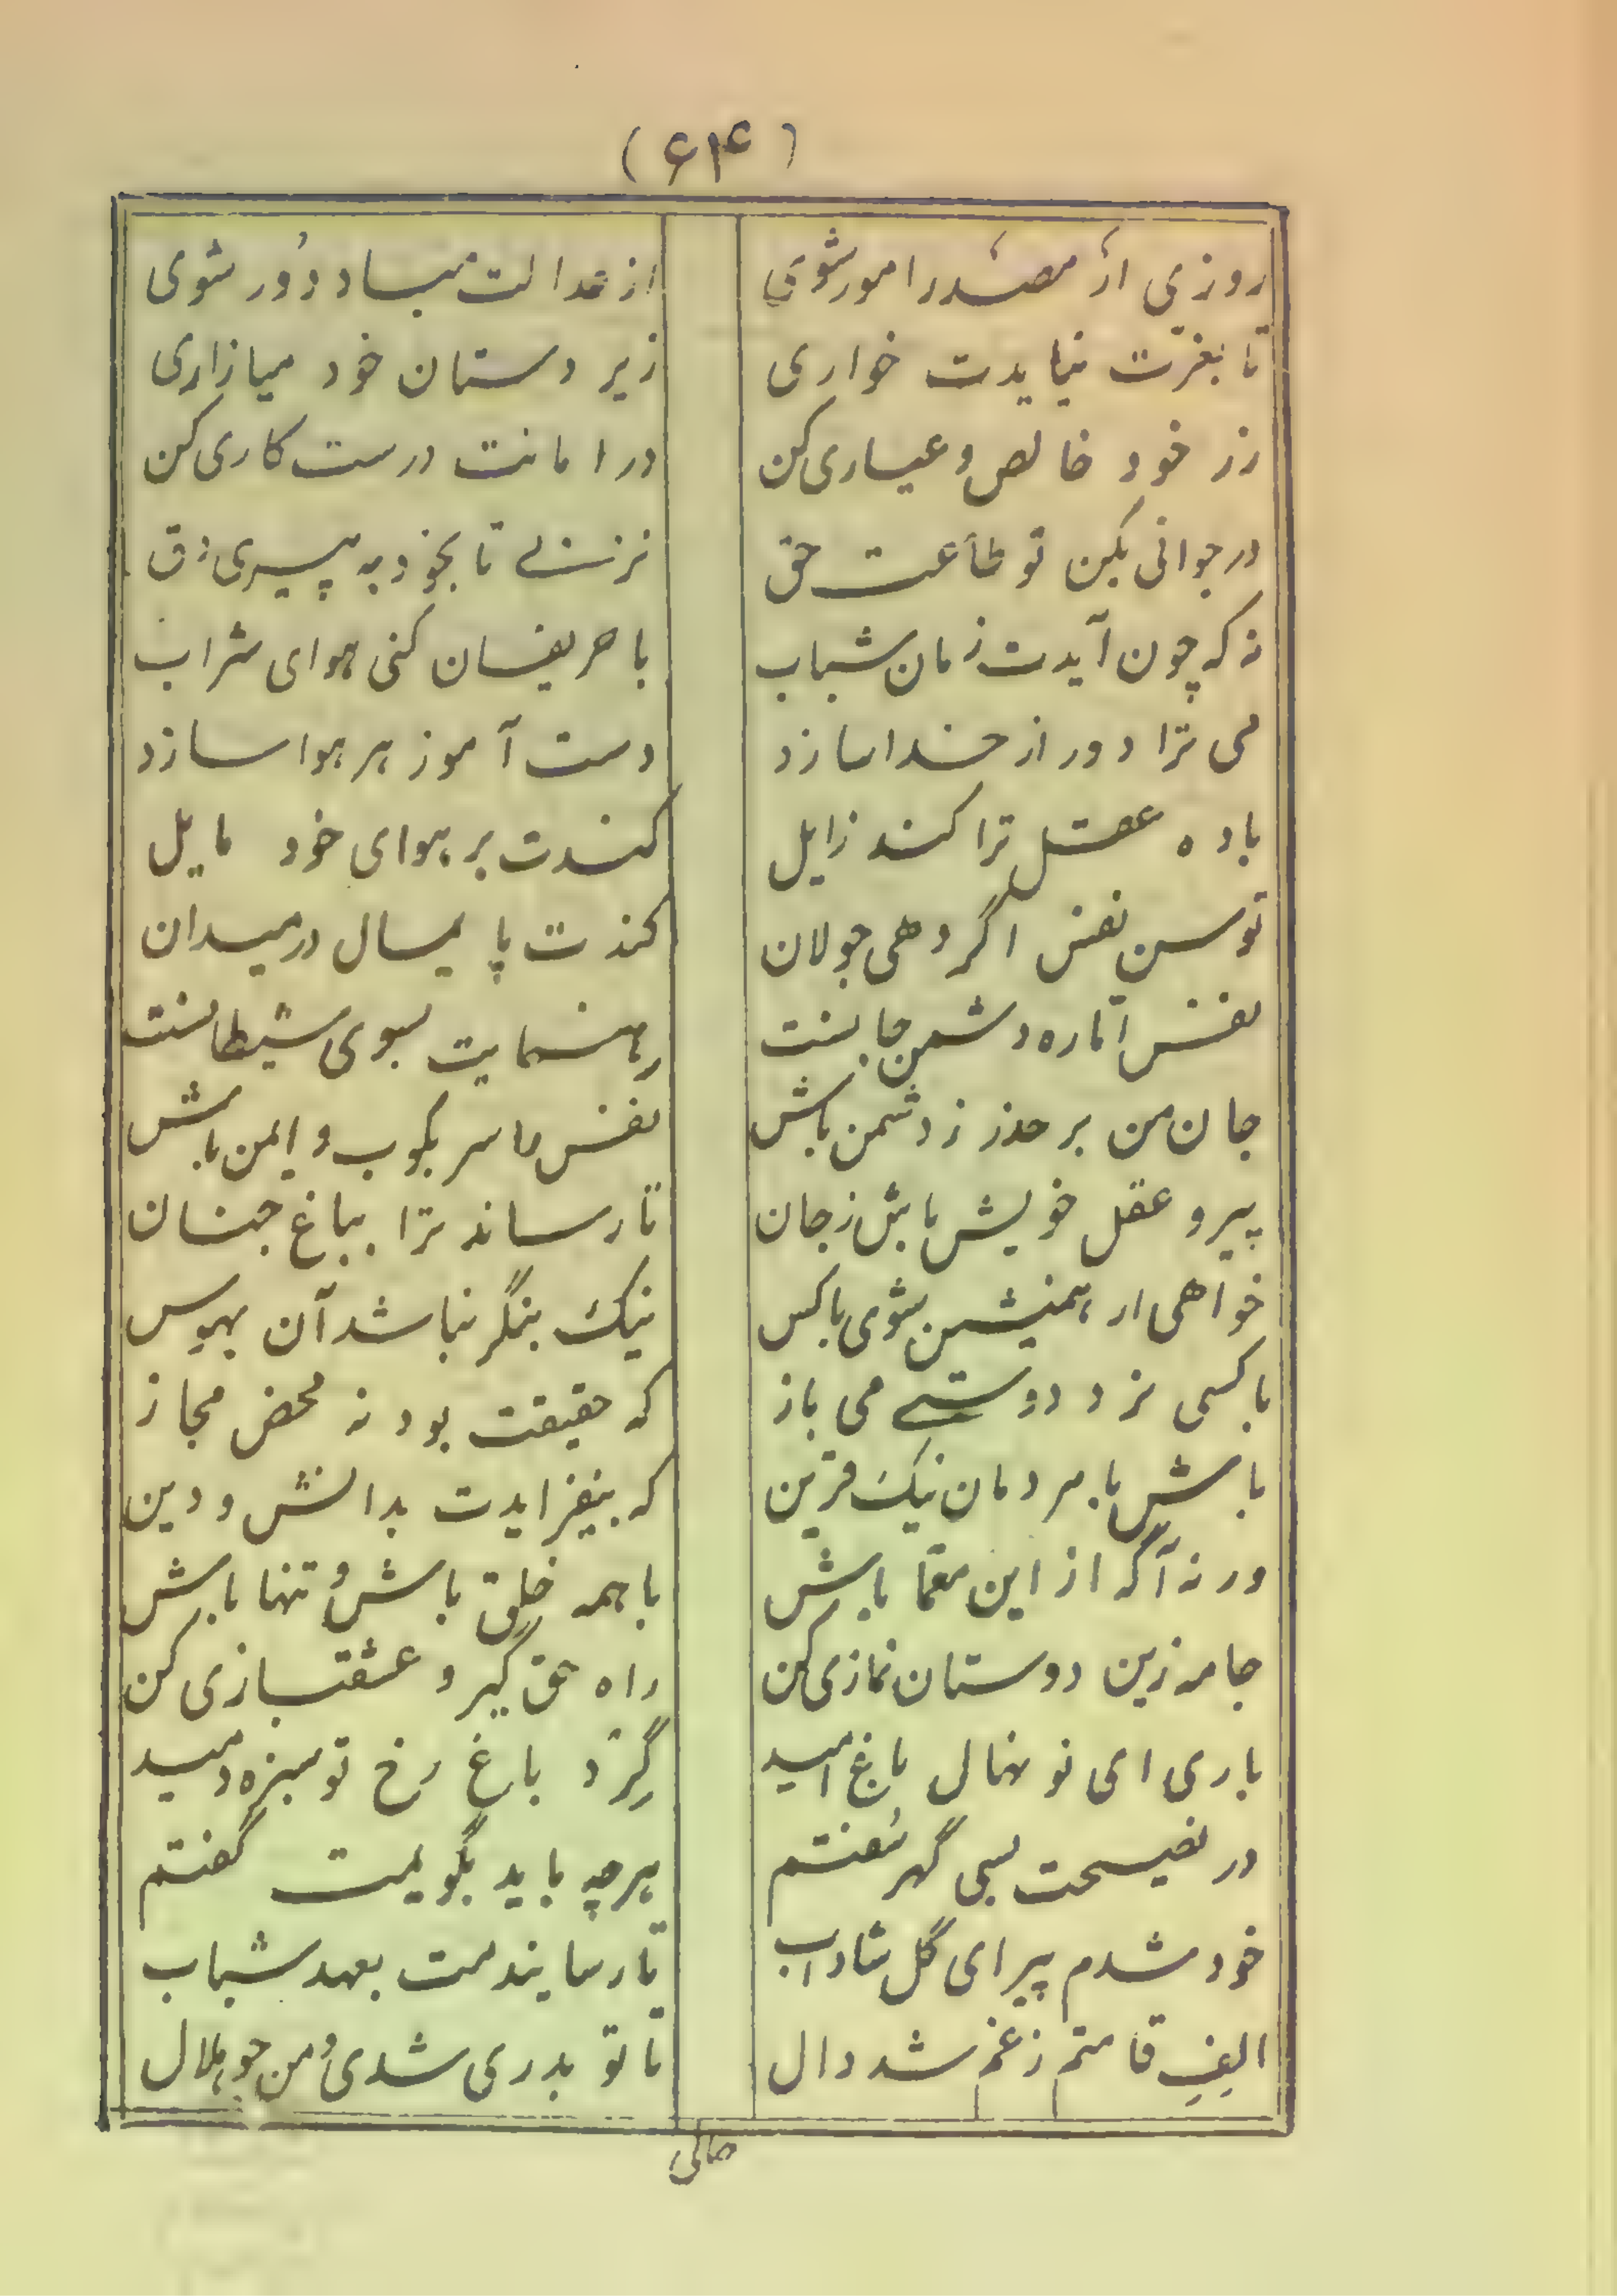 (۶۱۴)
روزی ار مصدر امور شوی از عدالت مباد دور شوی
تا بعزت نیایدت خواری زیر دستان خود میازاری
زر خود خالص و عیاری کن در امانت درست کاری کن
در جوانی بکن تو طاعت حق نزنی تا بخود به پیری دق
نه که چون آیدت زمان شباب با حریفان کنی هوای شراب
می ترا دور از خدا سازد دست آموز هر هوا سازد
باده عقل ترا کند زایل کندت بر هوای خود مایل
توسن نفس اگر دهی جولان کندت پایمال در میدان
نفس اماره دشمن جانست رهنمایت بسوی شیطانست
جان من بر حذر ز دشمن باش نفس را سر بکوب و ایمن باش
پیرو عقل خویش باش ز جان تا رساند ترا بباغ جنان
خواهی ار همنشین شوی با کس نیک بنگر نباشد آن بهوس
با کسی نرد دوستی می باز که حقیقت بود نه محض مجاز
باش با مردمان نیک قرین که بیفزایدت بدانش و دین
ورنه آگه از این معما باش با همه خلق باش و تنها باش
جامه زین دوستان نمازی کن راه حق گیر و عشقبازی کن
باری ای نو نهال باغ امید گرد باغ رخ تو سبزه دمید
در نصیحت بسی گهر سفتم هرچه باید بگویمت گفتم
خود شدم پیر ای گل شاداب تا رسانیدمت بعهد شباب
الف قامتم ز غم شد دال تا تو بدری شدی و من چو هلال
حالی